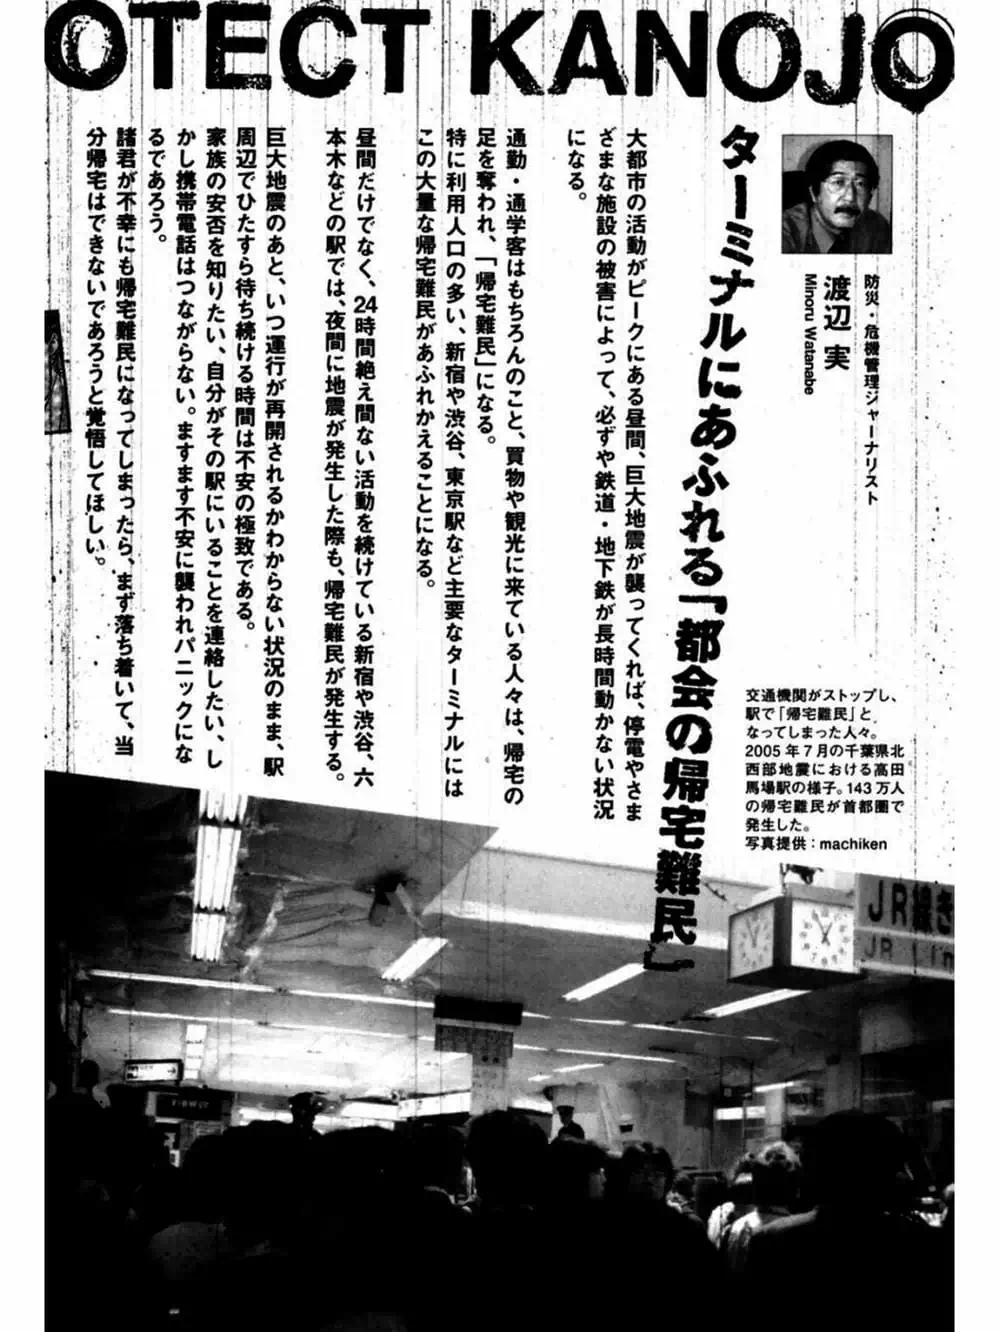 OTECT KANOJO
防災・危機管理ジャーナリスト
渡辺 実
Minoru Watanabe
ターミナルにあふれる「都会の帰宅難民」
大都市の活動がピークにある昼間、巨大地震が襲ってくれば、停電やさま
ざまな施設の被害によって、必ずや鉄道・地下鉄が長時間動かない状況
になる。
通勤・通学客はもちろんのこと、買物や観光に来ている人々は、帰宅の
足を奪われ、「帰宅難民」になる。
特に利用人口の多い、新宿や渋谷、東京駅など主要なターミナルには
この大量な帰宅難民があふれかえることになる。
昼間だけでなく、24時間絶え間ない活動を続けている新宿や渋谷、六
本木などの駅では、夜間に地震が発生した際も、帰宅難民が発生する。
巨大地震のあと、いつ運行が再開されるかわからない状況のまま、駅
周辺でひたすら待ち続ける時間は不安の極致である。
家族の安否を知りたい、自分がその駅にいることを連絡したい、し
かし携帯電話はつながらない。ますます不安に襲われパニックにな
るであろう。
諸君が不幸にも帰宅難民になってしまったら、まず落ち着いて、当
分帰宅はできないであろうと覚悟してほしい。
交通機関がストップし、
駅で「帰宅難民」と
なってしまった人々。
2005年7月の千葉県北
西部地震における高田
馬場駅の様子。143万人
の帰宅難民が首都圏で
発生した。
写真提供：machiken
JR線き
JR Lin